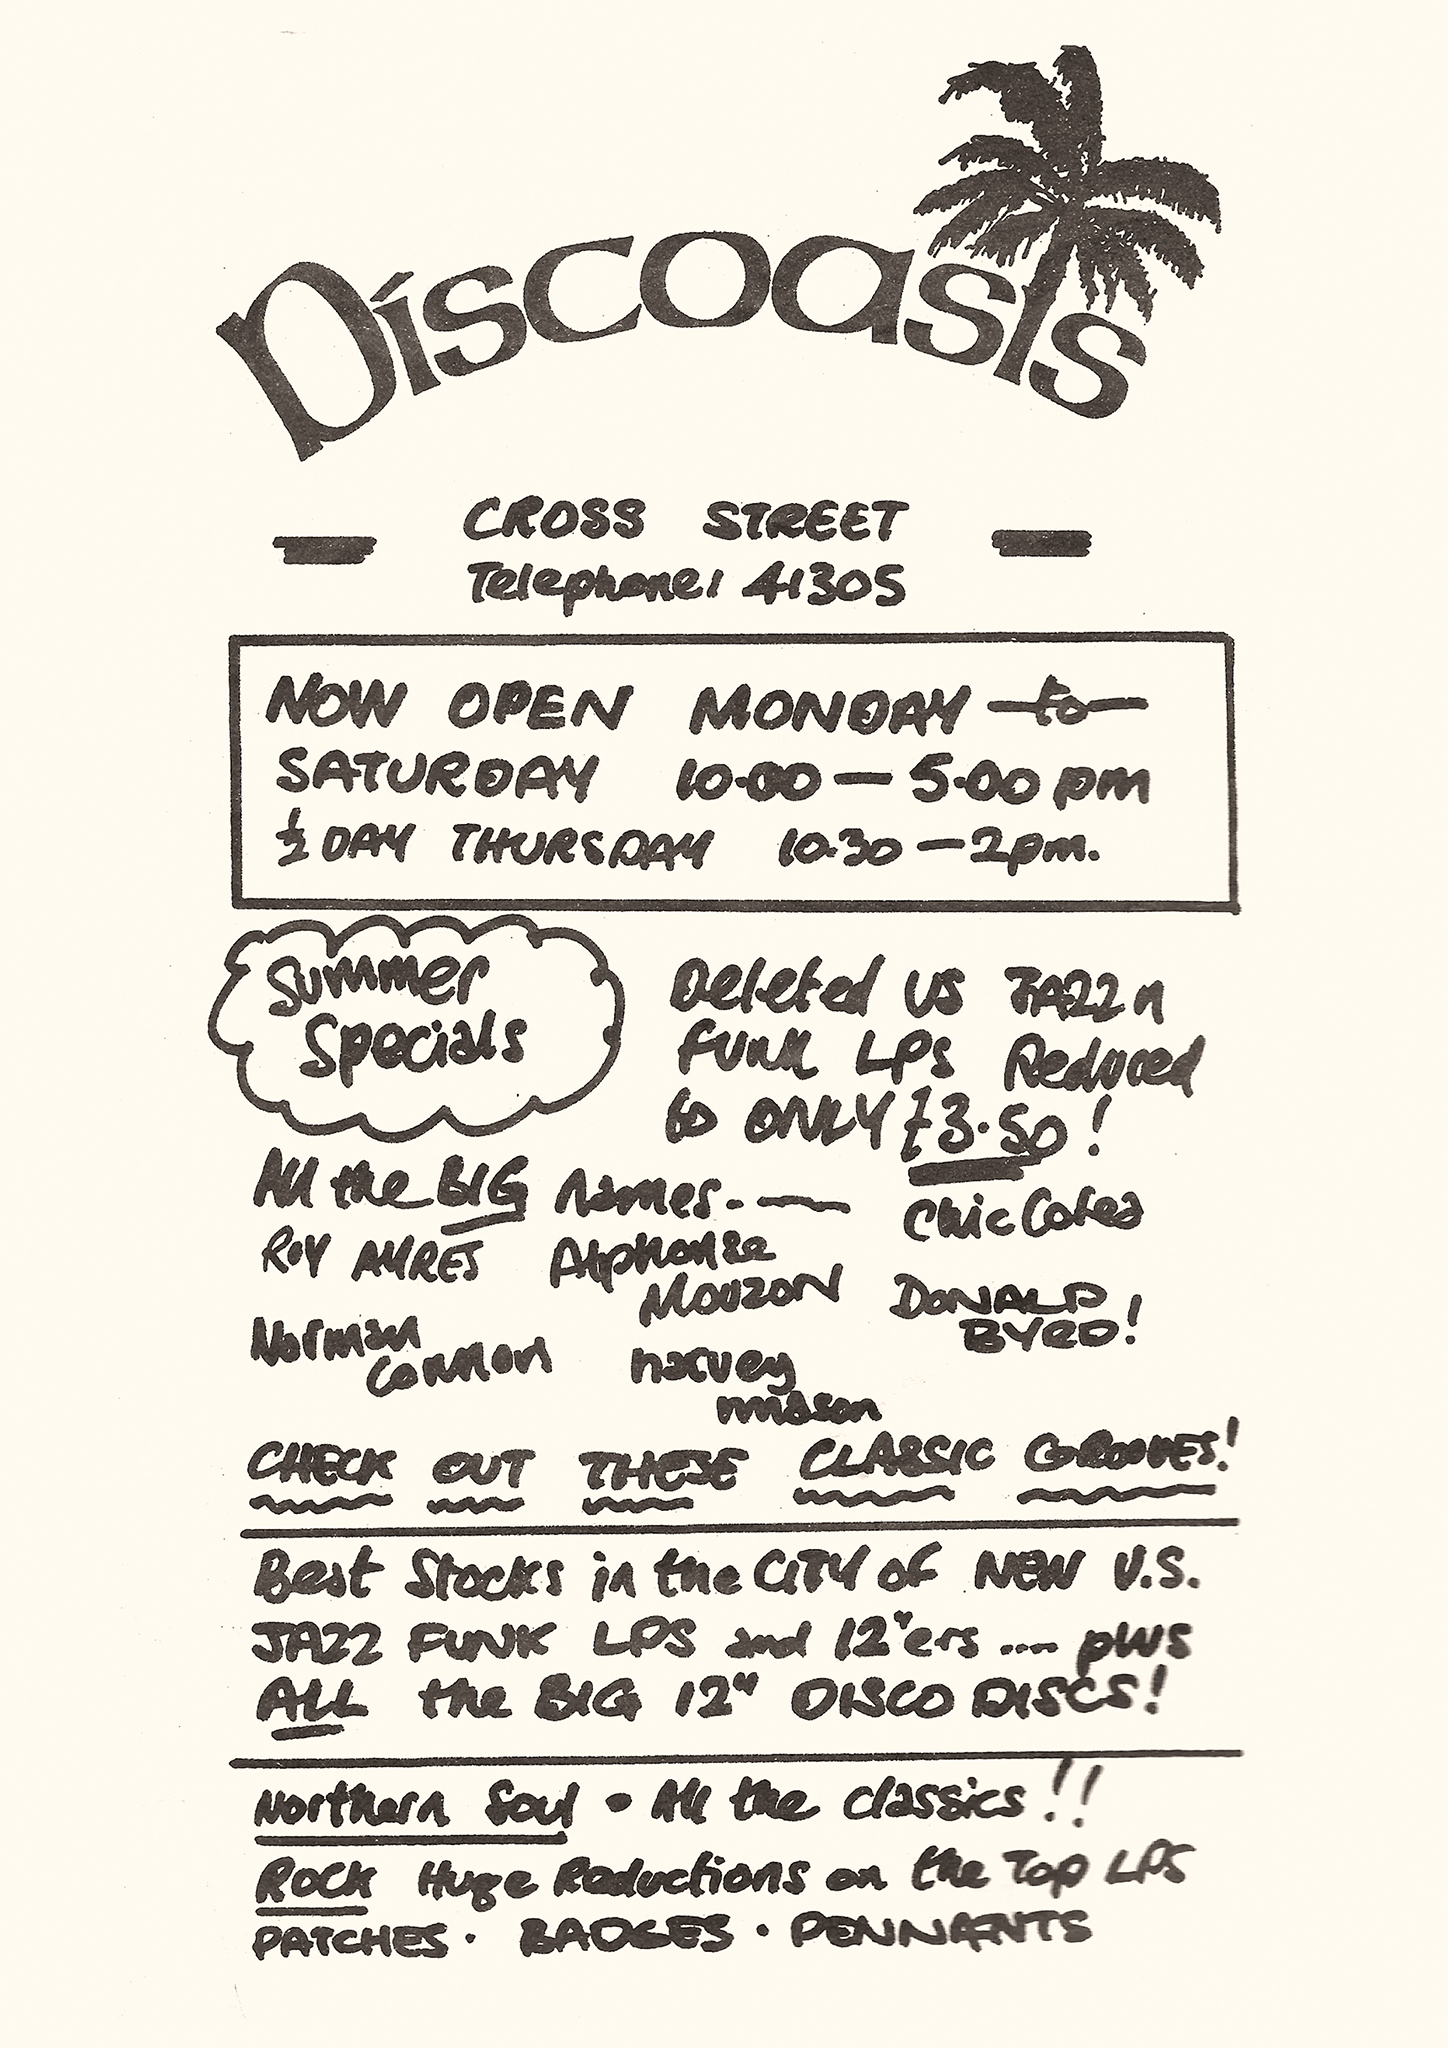 Discoasis
CROSS STREET
Telephone: 41305
NOW OPEN MONDAY to
SATURDAY 10.00 — 5.00 pm
½ DAY THURSDAY 10.30 — 2pm.
Summer
Specials
Deleted US JAZZ n
FUNK LPs Reduced
to ONLY £3.50!
All the BIG names. —
Chic Corea
ROY AYRES
Alphonse
MOUZON
DONALD
BYRD!
Norman
Connon
harvey
mason
CHECK OUT THESE CLASSIC GROOVES!
Best Stocks in the CITY of NEW U.S.
JAZZ FUNK LPS and 12"ers .... plus
ALL the BIG 12" DISCO DISCS!
Northern Soul • All the classics!!
ROCK Huge Reductions on the Top LPS
PATCHES · BADGES · PENNANTS